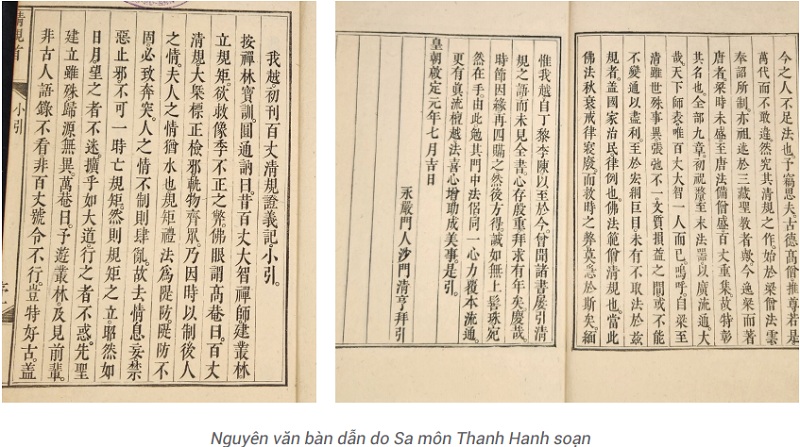 清規首
小引
我越初刊百丈清規證義記小引。
按禪林寶訓。圓通訥曰。昔百丈大智禪師建叢林
立規矩。欲救像季不正之弊。佛眼謂高菴曰。百丈
清規大槩標正檢邪軌物齊眾。乃因時以制後人
之情。夫人之情猶水也。規矩禮法為隄防。隄防不
固。必致奔突。人之情不制則肆亂。故去情息妄禁
惡止邪。不可一時亡規矩。然則規矩之立。昭然如
日月。望之者不迷。擴乎如大道。行之者不惑。先聖
建立雖殊。歸源無異。萬菴曰。予遊叢林。及見前輩。
非古人語錄不看。非百丈號令不行。豈特好古。蓋
今之人不足法也。予竊思夫。古德高僧推尊若是
萬代而不敢違。然究其清規之作。始於梁僧法雲
奉詔所制。亦祖述於三藏聖教者歟。今逸梁而著
唐者。梁時未盛。至唐法備僧盛。百丈重集。故特彰
其名也。全部九章。初祝釐至末法器。以廣流通。大
哉。天下師表。唯百丈大智一人而已。嗚呼。自梁至
清。雖世殊事異。張弛不一。文質損益之間。或不能
不變通以盡利。至於宏綱巨目。未有不取法於茲
規者。蓋國家治民律例也。佛法範僧清規也。當此
佛法秋衰。戒律寖廢。而救時之弊。莫急於斯矣。緬
惟我越自丁黎李陳以至於今。曾聞諸書屢引清
規之語。而未見全書。心存殷重。拜求有年矣。慶哉。
時節因緣。再四購之。然後方得。誠如無上髻珠。宛
然在手。由此勉其門中法侶。同一心力。覆本流通。
更有眞流檀越。法喜心增。助成美事。是引。
皇朝啟定元年七月吉日
永嚴門人沙門清亨拜引
Nguyên văn bàn dẫn do Sa môn Thanh Hanh soạn